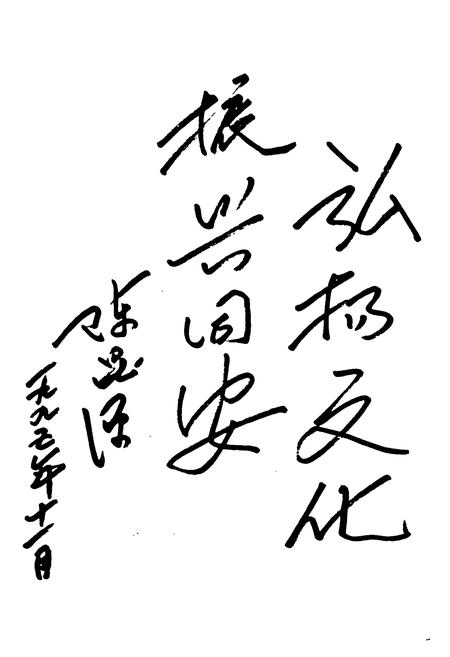 弘扬文化
振兴同安
陈
一九九三年十一月